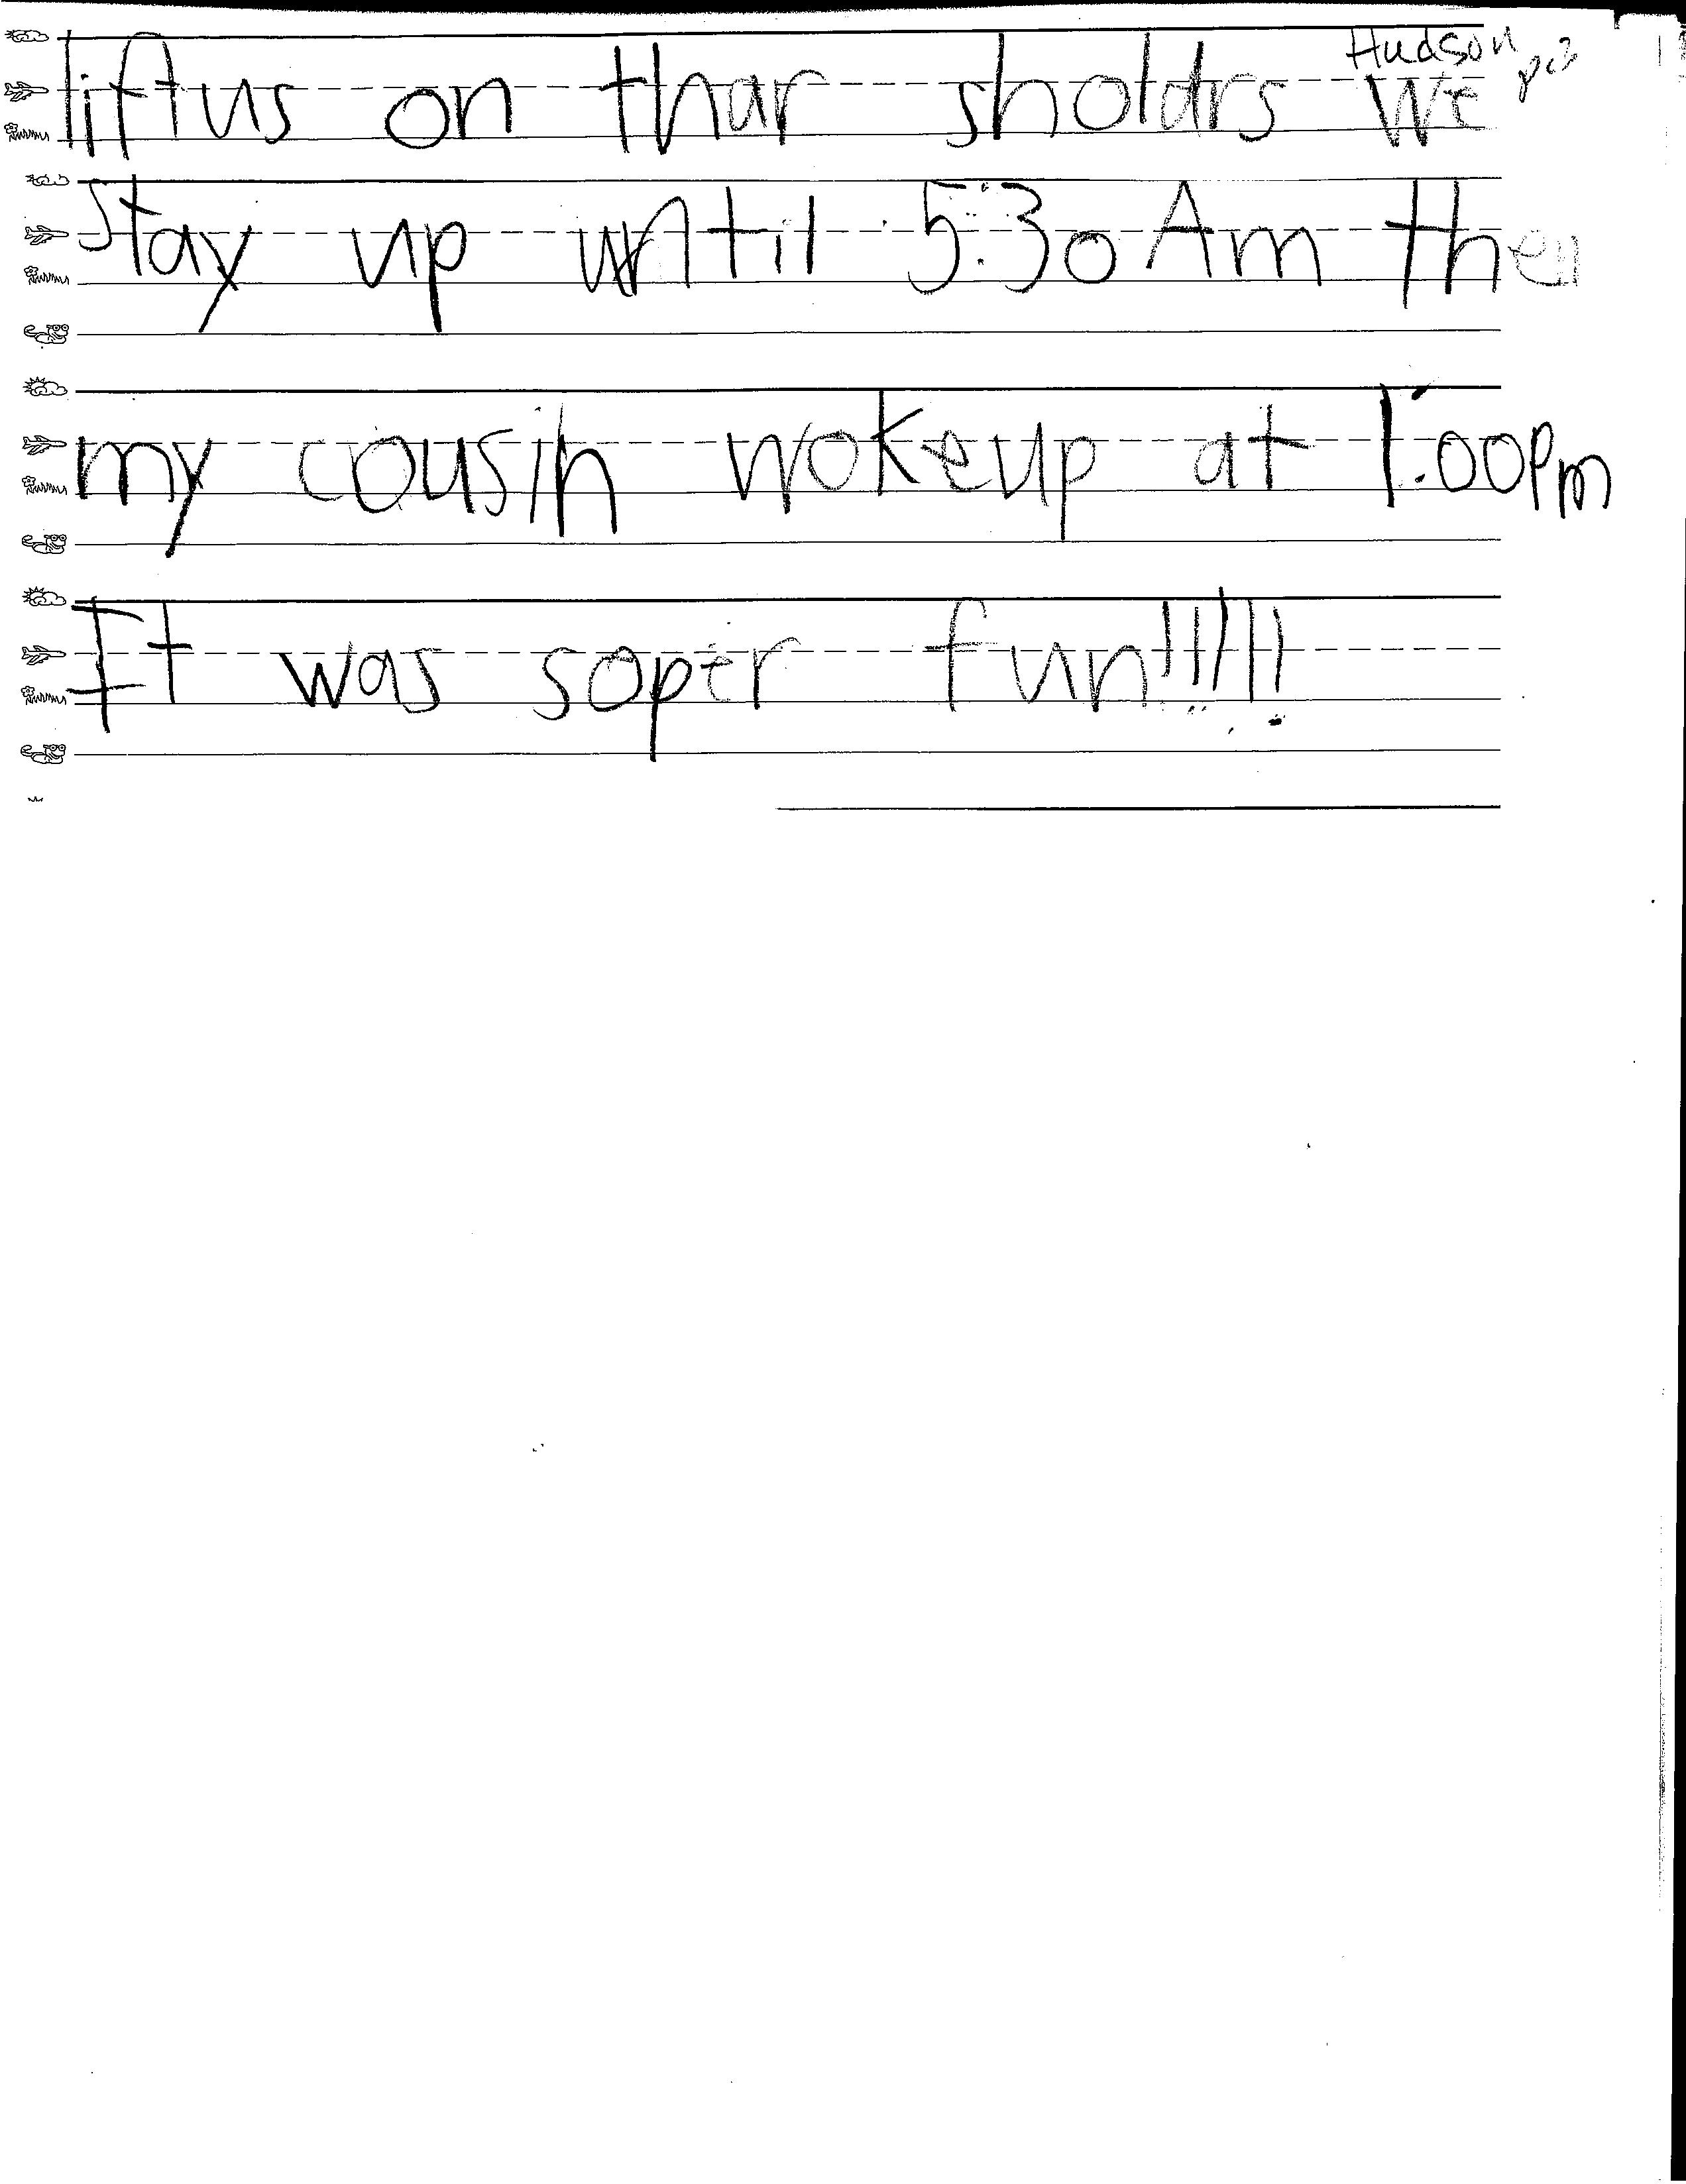 Hudson
liftus on thar sholdrs We
Stay up until 5:30 Am then
my cousin wokeup at 1:00pm
It was soper fun!!!!!